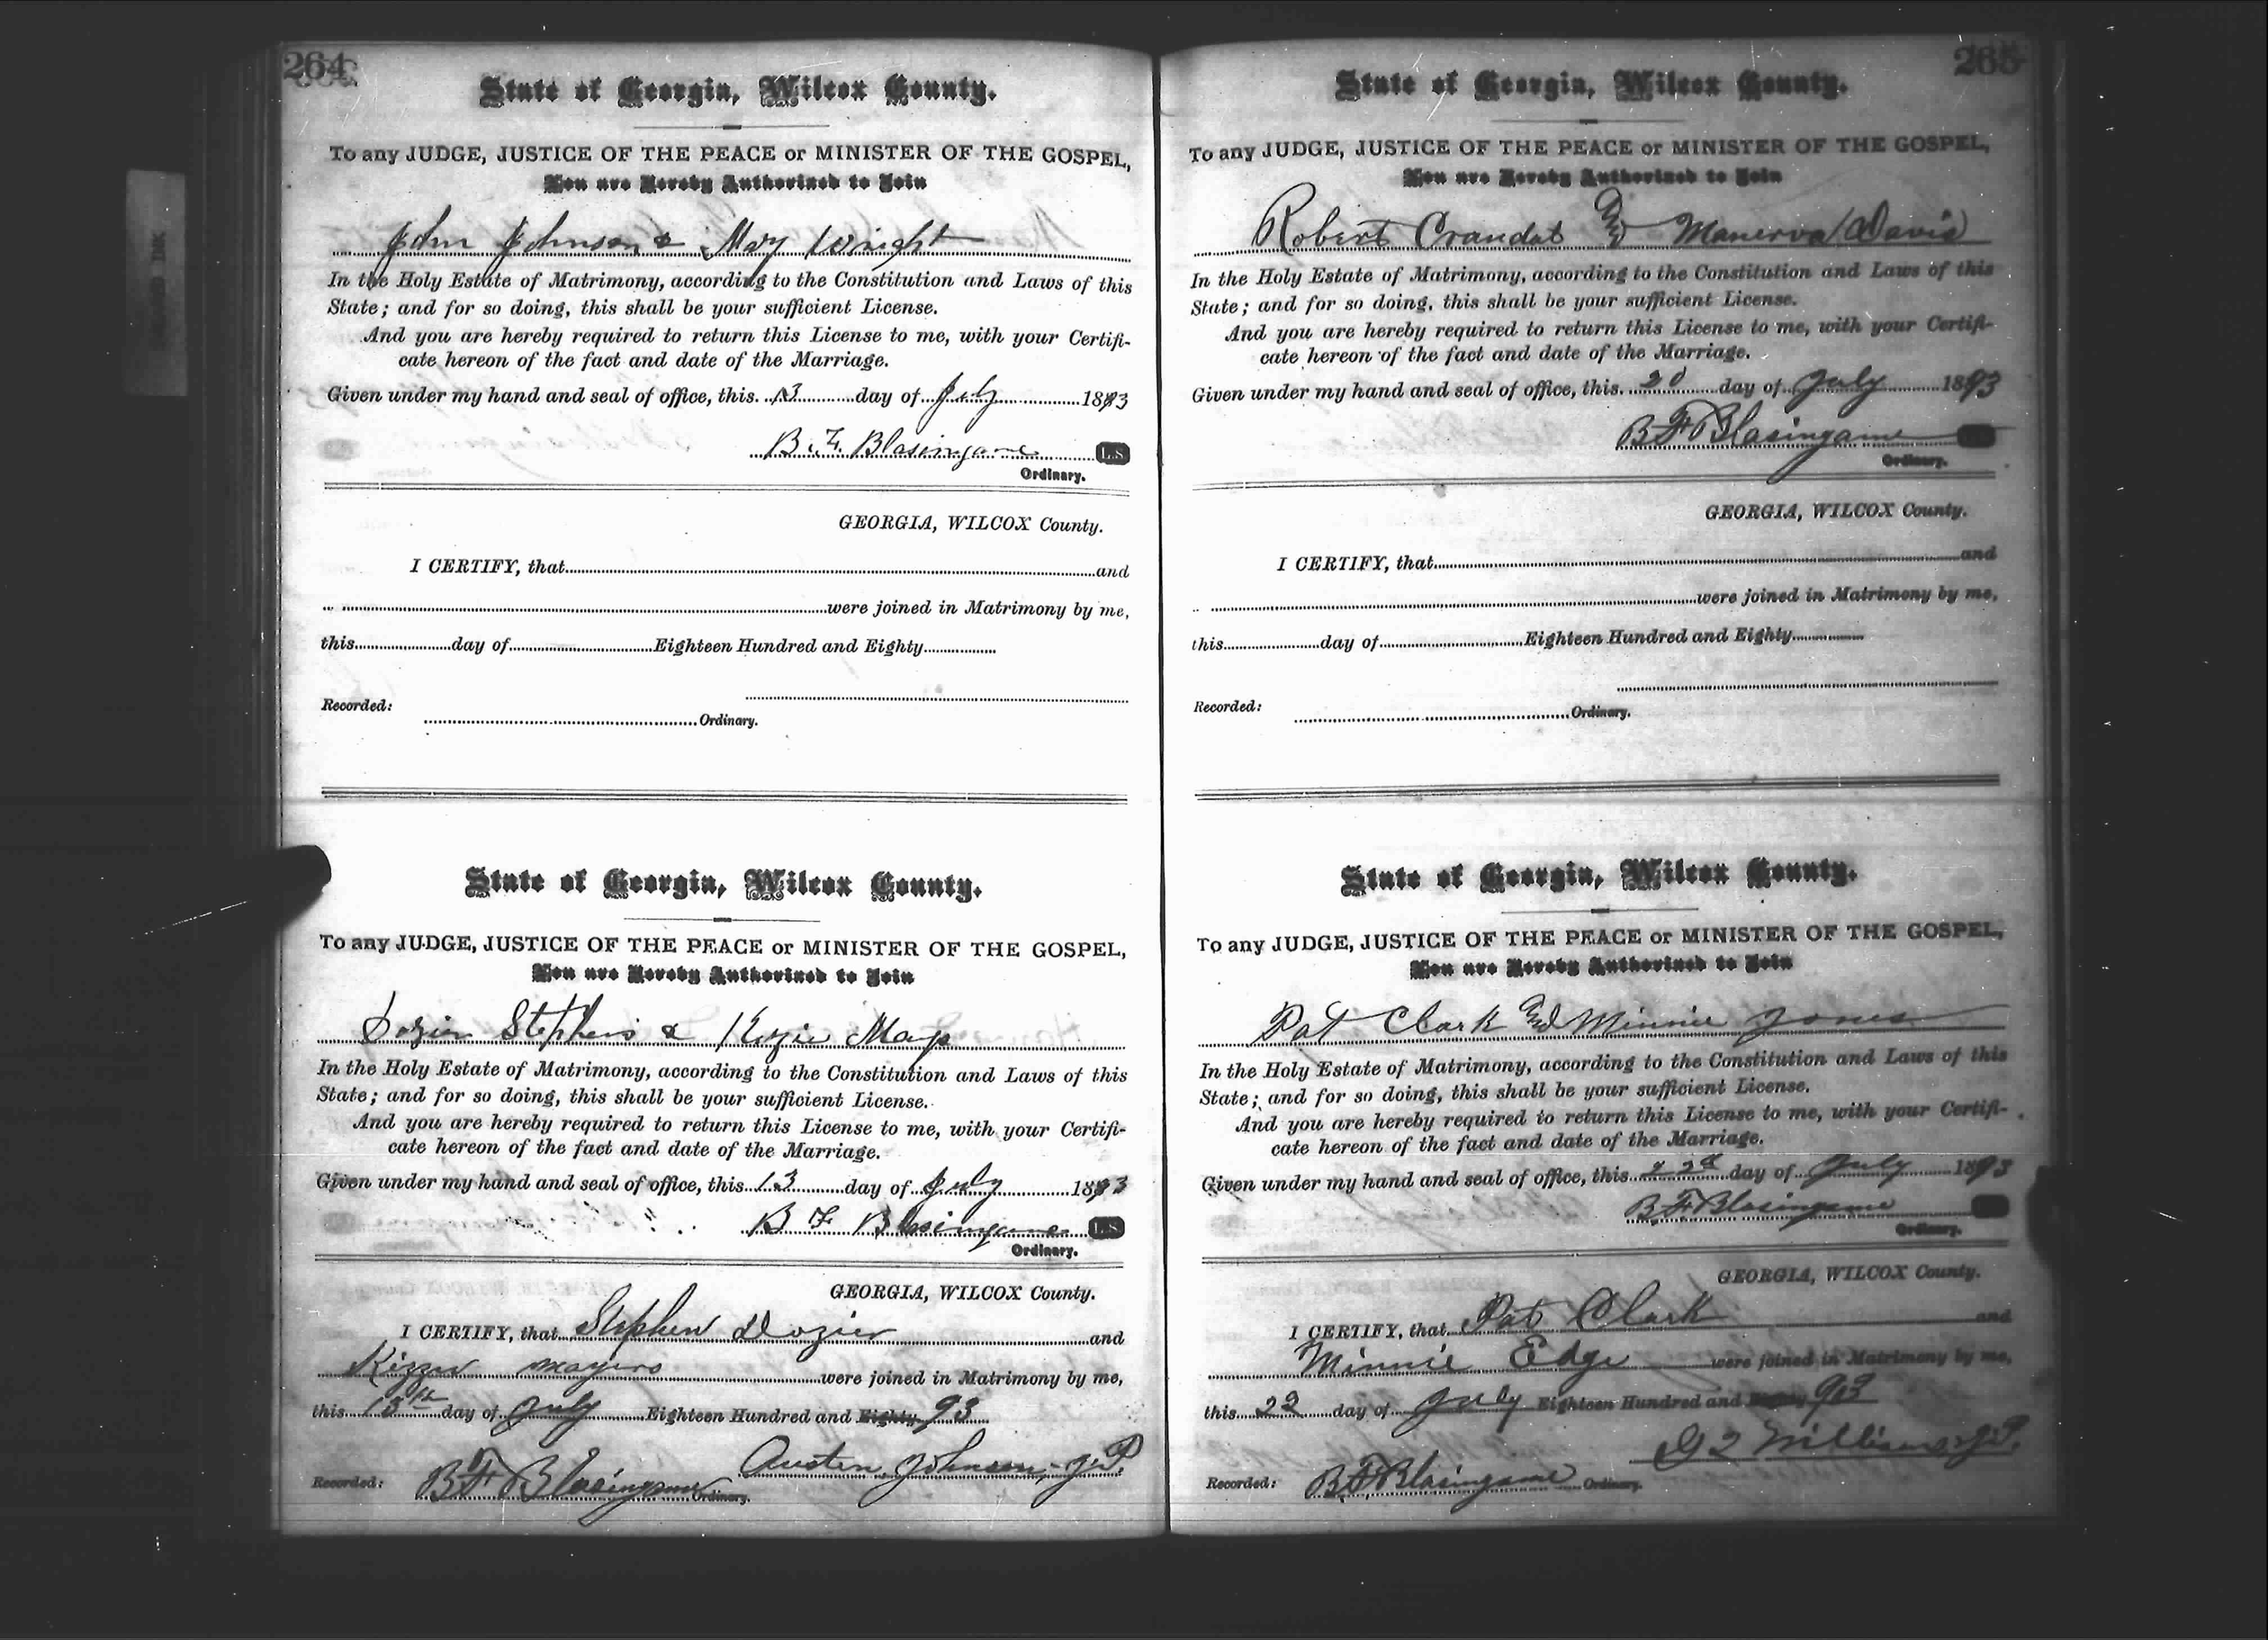 264
State of Georgia, Wilcox County.
To any JUDGE, JUSTICE OF THE PEACE or MINISTER OF THE GOSPEL,
You are Hereby Authorized to Join
John Johnson & Mary Wright
In the Holy Estate of Matrimony, according to the Constitution and Laws of this
State; and for so doing, this shall be your sufficient License.
And you are hereby required to return this License to me, with your Certifi-
cate hereon of the fact and date of the Marriage.
Given under my hand and seal of office, this 13 day of July 1893
B. F. Blasingame L.S
Ordinary.
GEORGIA, WILCOX County.
I CERTIFY, that and
were joined in Matrimony by me,
this day of Eighteen Hundred and Eighty
Recorded: Ordinary.
State of Georgia, Wilcox County.
To any JUDGE, JUSTICE OF THE PEACE or MINISTER OF THE GOSPEL,
You are Hereby Authorized to Join
Dozier Stephens & Kizzie Mays
In the Holy Estate of Matrimony, according to the Constitution and Laws of this
State; and for so doing, this shall be your sufficient License.
And you are hereby required to return this License to me, with your Certifi-
cate hereon of the fact and date of the Marriage.
Given under my hand and seal of office, this 13 day of July 1893
B F Blasingame L.S
Ordinary.
GEORGIA, WILCOX County.
I CERTIFY, that Stephen Dozier and
Kizzie were joined in Matrimony by me,
this 15th day of July Eighteen Hundred and Eighty 93
Austin Johnson, J.P.
Recorded: B F Blasingame Ordinary.
265
State of Georgia, Wilcox County.
To any JUDGE, JUSTICE OF THE PEACE or MINISTER OF THE GOSPEL,
You are Hereby Authorized to Join
Robert Crandal and Manerva Davis
In the Holy Estate of Matrimony, according to the Constitution and Laws of this
State; and for so doing, this shall be your sufficient License.
And you are hereby required to return this License to me, with your Certifi-
cate hereon of the fact and date of the Marriage.
Given under my hand and seal of office, this 20 day of July 1893
B F Blasingame
Ordinary.
GEORGIA, WILCOX County.
I CERTIFY, that and
were joined in Matrimony by me,
this day of Eighteen Hundred and Eighty
Recorded: Ordinary.
State of Georgia, Wilcox County.
To any JUDGE, JUSTICE OF THE PEACE or MINISTER OF THE GOSPEL,
You are Hereby Authorized to Join
Pat Clark and Minnie Jones
In the Holy Estate of Matrimony, according to the Constitution and Laws of this
State; and for so doing, this shall be your sufficient License.
And you are hereby required to return this License to me, with your Certifi-
cate hereon of the fact and date of the Marriage.
Given under my hand and seal of office, this 22d day of July 1893
B. F. Blasingame
Ordinary.
GEORGIA, WILCOX County.
I CERTIFY, that Pat Clark and
Minnie Edge were joined in Matrimony by me,
this 22 day of July Eighteen Hundred and Eighty 93
Williams J.P.
Recorded: B F Blasingame Ordinary.